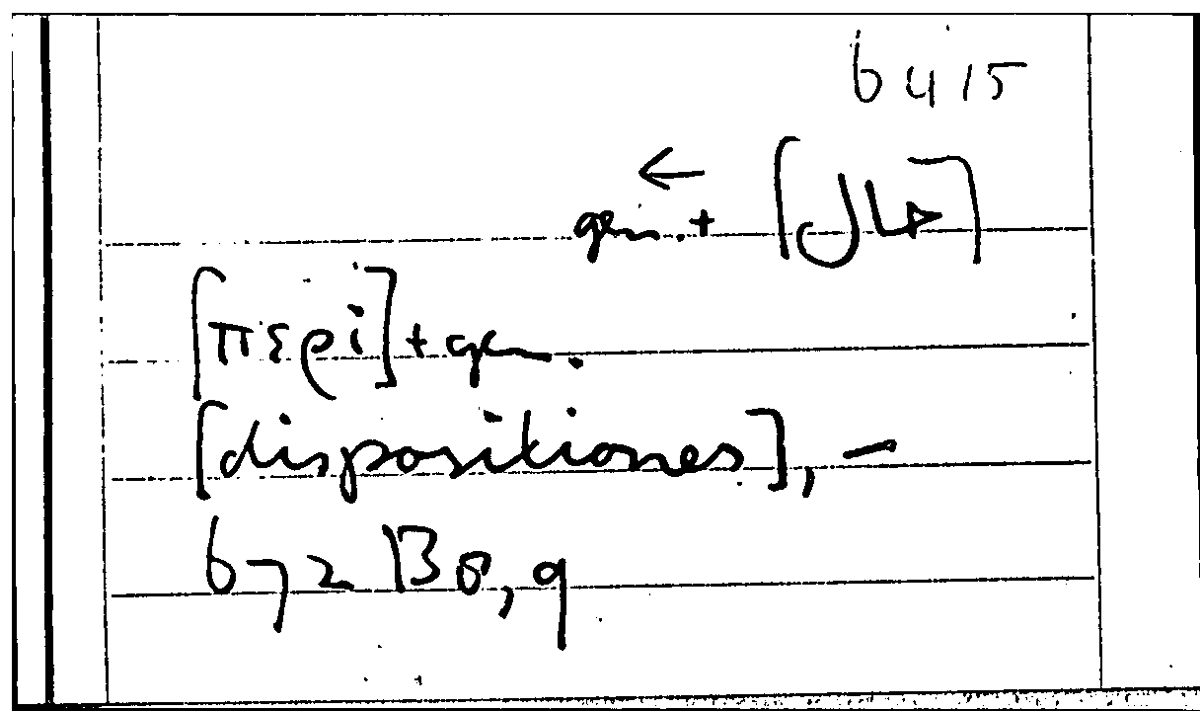 6415
←
gen. + [حال]
[περί] + gen.
[dispositiones], –
672 B8, 9